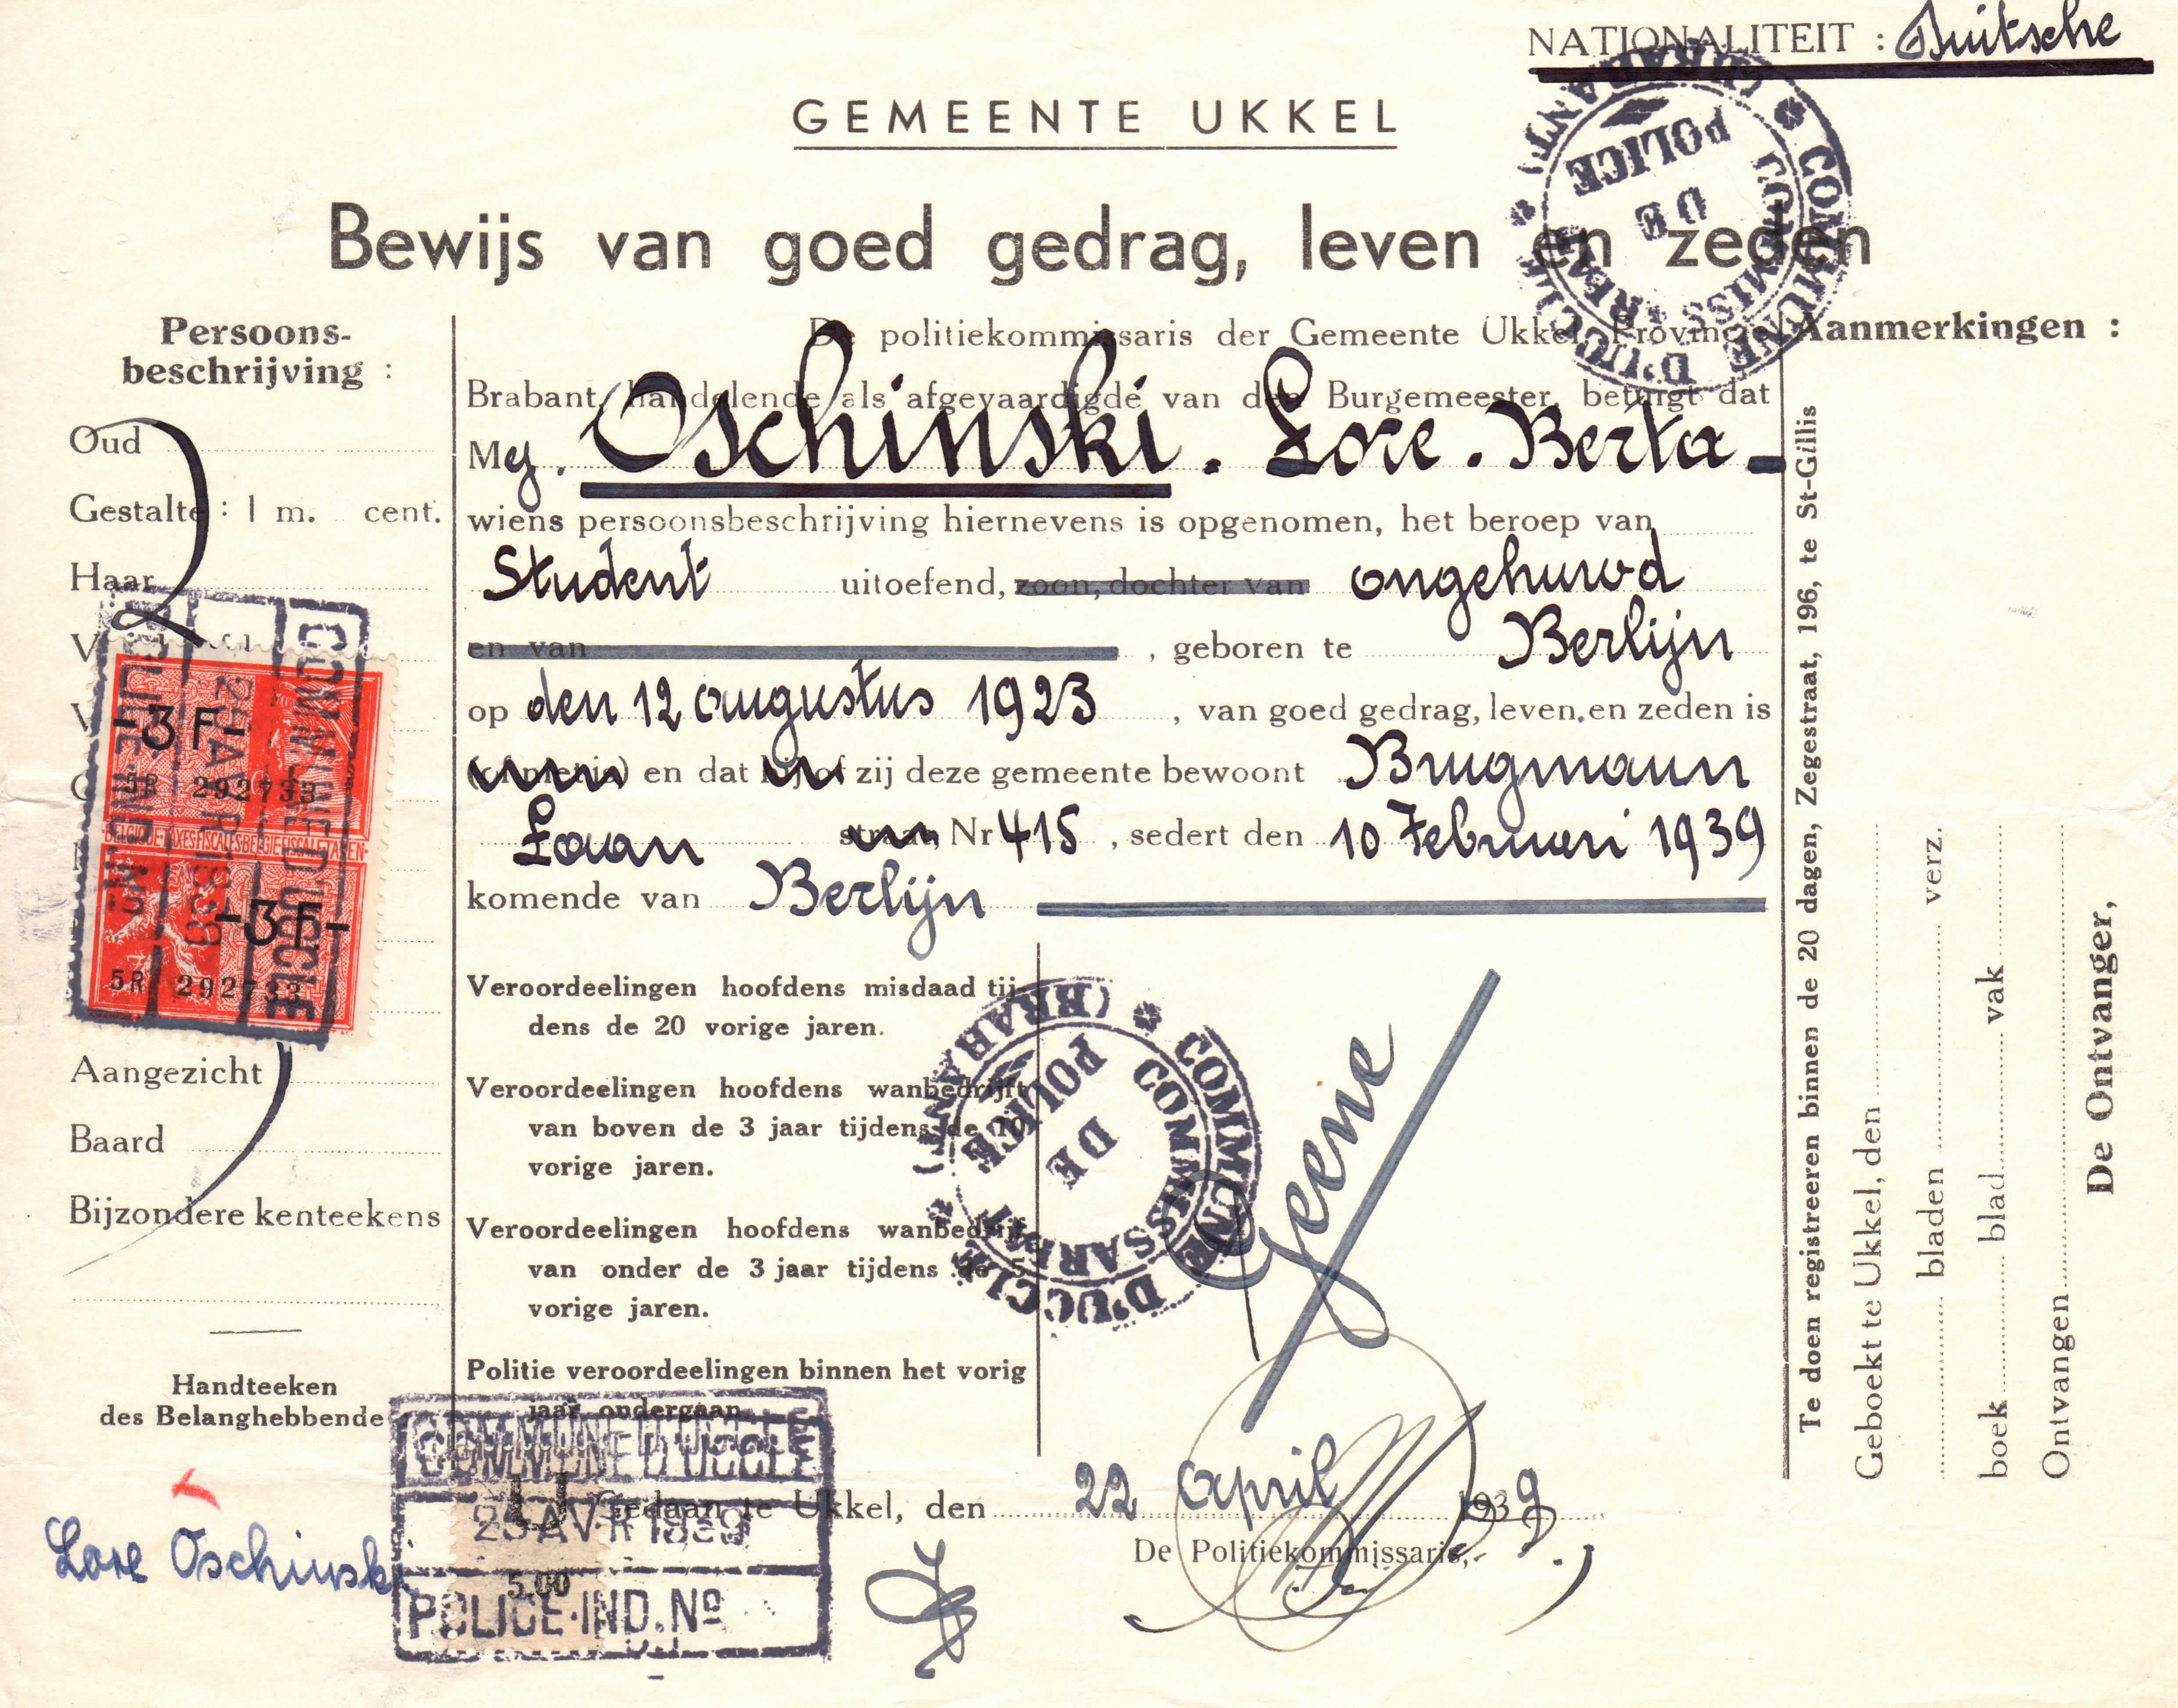 NATIONALITEIT : Duitsche
GEMEENTE UKKEL
Bewijs van goed gedrag, leven en zeden
COMMUNE D'UCCLE * (BRABANT) *
COMMISSARIAT
DE
POLICE
Persoons-
beschrijving :
Oud
Gestalte : 1 m. cent.
Haar
Aangezicht
Baard
Bijzondere kenteekens
Handteeken
des Belanghebbende
Lore Oschinski
De politiekommissaris der Gemeente Ukkel, Provincie
Brabant, handelende als afgevaardigde van den Burgemeester, betuigt dat
Mej. Oschinski. Lore. Berta
wiens persoonsbeschrijving hiernevens is opgenomen, het beroep van
Student uitoefend, zoon, dochter van ongehuwd
en van , geboren te Berlijn
op den 12 augustus 1923 , van goed gedrag, leven, en zeden is
en dat zij deze gemeente bewoont Brugmann
Laan straat Nr 415 , sedert den 10 Februari 1939
komende van Berlijn
Veroordeelingen hoofdens misdaad tij-
dens de 20 vorige jaren.
Veroordeelingen hoofdens wanbedrijft
van boven de 3 jaar tijdens de 10
vorige jaren.
Veroordeelingen hoofdens wanbedrijft
van onder de 3 jaar tijdens de 5
vorige jaren.
Politie veroordeelingen binnen het vorig
jaar ondergaan
Geene
COMMUNE D'UCCLE * (BRABANT) *
COMMISSARIAT
DE
POLICE
Gedaan te Ukkel, den 22 April 1939.
De Politiekommissaris,
COMMUNE D'UCCLE
AVR 1939
5.00
POLICE-IND. Nº
COMMUNE D'UCCLE
AVR 1939
POLICE-IND. Nº
-3 F-
5R 292733
BELGIQUE-TAXES FISCALES-BELGIE-FISCALE TAXEN-
-3 F-
5R 292733
Aanmerkingen :
Te doen registreeren binnen de 20 dagen, Zegestraat, 196, te St-Gillis
Geboekt te Ukkel, den
bladen verz.
boek blad vak
Ontvangen
De Ontvanger,